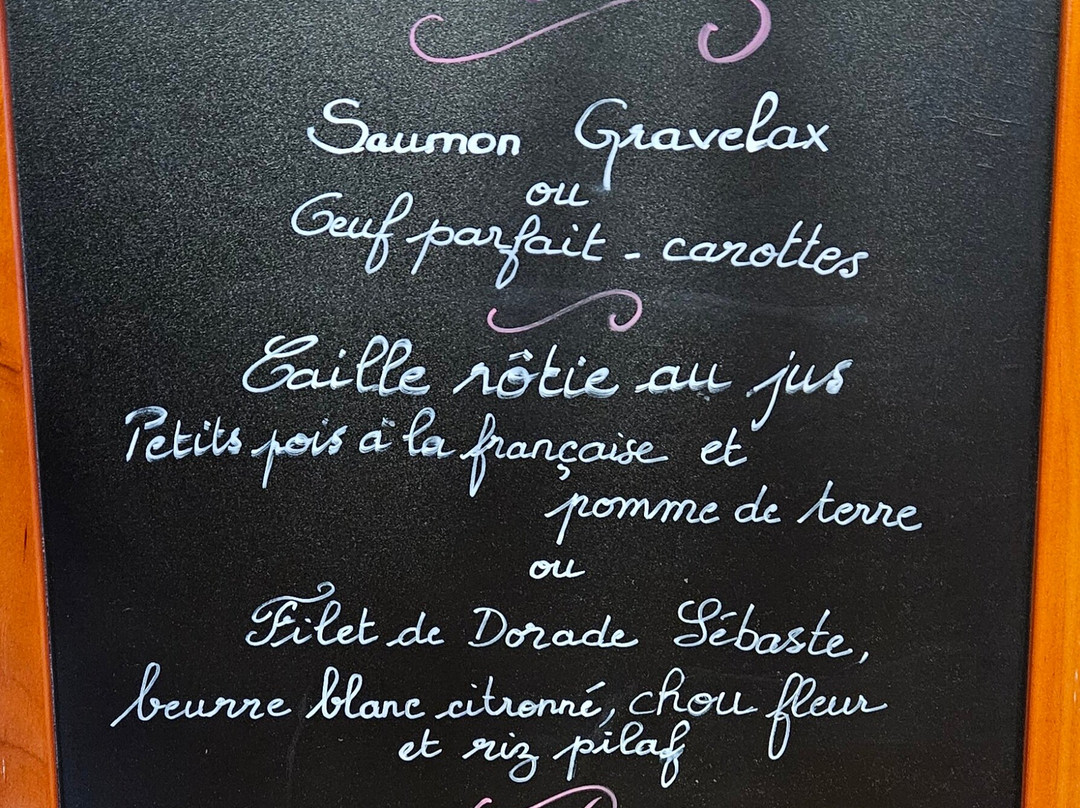 Saumon Gravelax
ou
Oeuf parfait - carottes
Caille rôtie au jus
Petits pois à la française et
pomme de terre
ou
Filet de Dorade Sébaste,
beurre blanc citronné, chou fleur
et riz pilaf